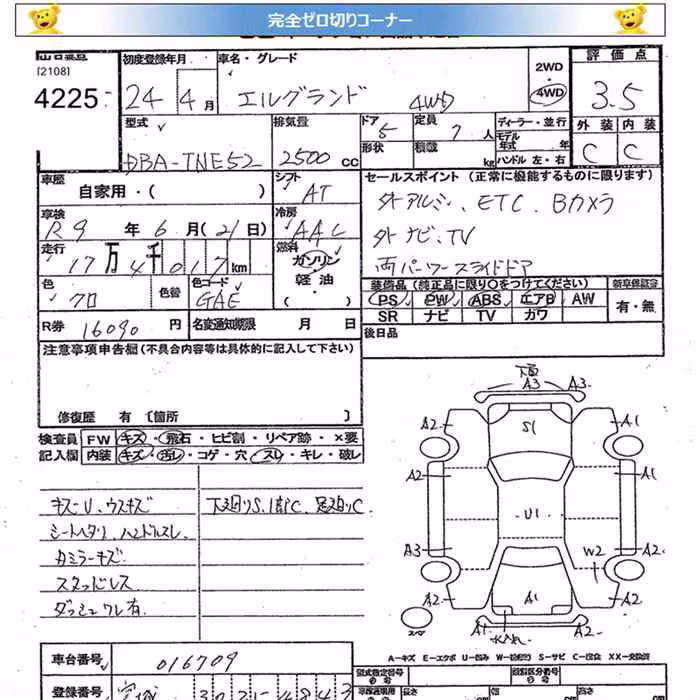 完全ゼロ切りコーナー
[2108]
4225
初度登録年月
24年 4月
車名・グレード
エルグランド 4WD
2WD
4WD
評価点
3.5
外装 内装
C C
型式
DBA-TNE52
排気量
2500cc
ドア 5
形状
定員 7人
積載 kg
ディーラー・並行
モデル年式 年
ハンドル 左・右
車歴
自家用・( )
シフト
AT
車検
R9年6月(21日)
冷房
AAC
走行
17万4千017km
燃料
ガソリン
軽油
・( )
色
クロ
色替
色コード
GAE
R券 16090円
名変通知期限 月 日
セールスポイント (正常に機能するものに限ります)
外アルミ、ETC、Bカメラ
外ナビ、TV
両パーワースライドドア
装備品(純正品に限り○をつけてください)
新車保証書
PS PW ABS エアB AW
SR ナビ TV カワ
有・無
後日品
注意事項申告欄(不具合内容等は具体的に記入して下さい)
修復歴 有 〔箇所 〕
検査員記入欄
FW キズ・飛石・ヒビ割・リペア跡・×要
内装 キズ・汚レ・コゲ・穴・スレ・キレ・破レ
キズU、ウスキズ
シートヘタリ、ハンドルスレ、
カミラーキズ
スタッドレス
ダッシュワレ有
下廻りS、1部C、足廻りC
下面
A3 A3
A2 S1 A1
A2 A1
U1
A3 W2 A2
A2 A1 A2
A1 A2
スペア
A-キズ E-エクボ U-凹み W-波(修正) S-サビ C-腐食 XX-交換済
車台番号
016709
登録番号
宮城
型式指定番号
類別区分番号
長さ